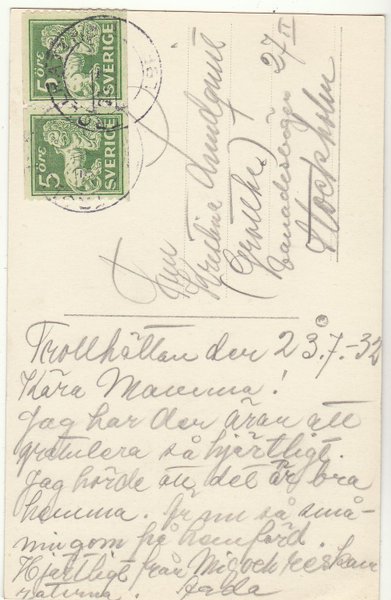 5 ÖRE SVERIGE
5 ÖRE SVERIGE
Fru
Kristina Lundquist
27 II
Stockholm
Trollhättan den 23.7.-32
Kära Mamma!
Jag har den äran att
gratulera så hjärtligt.
Jag hörde att det är bra
hemma. Är nu så små-
ningom på hemfärd.
Hjärtligt från Mig och reskam
raterna. Agda